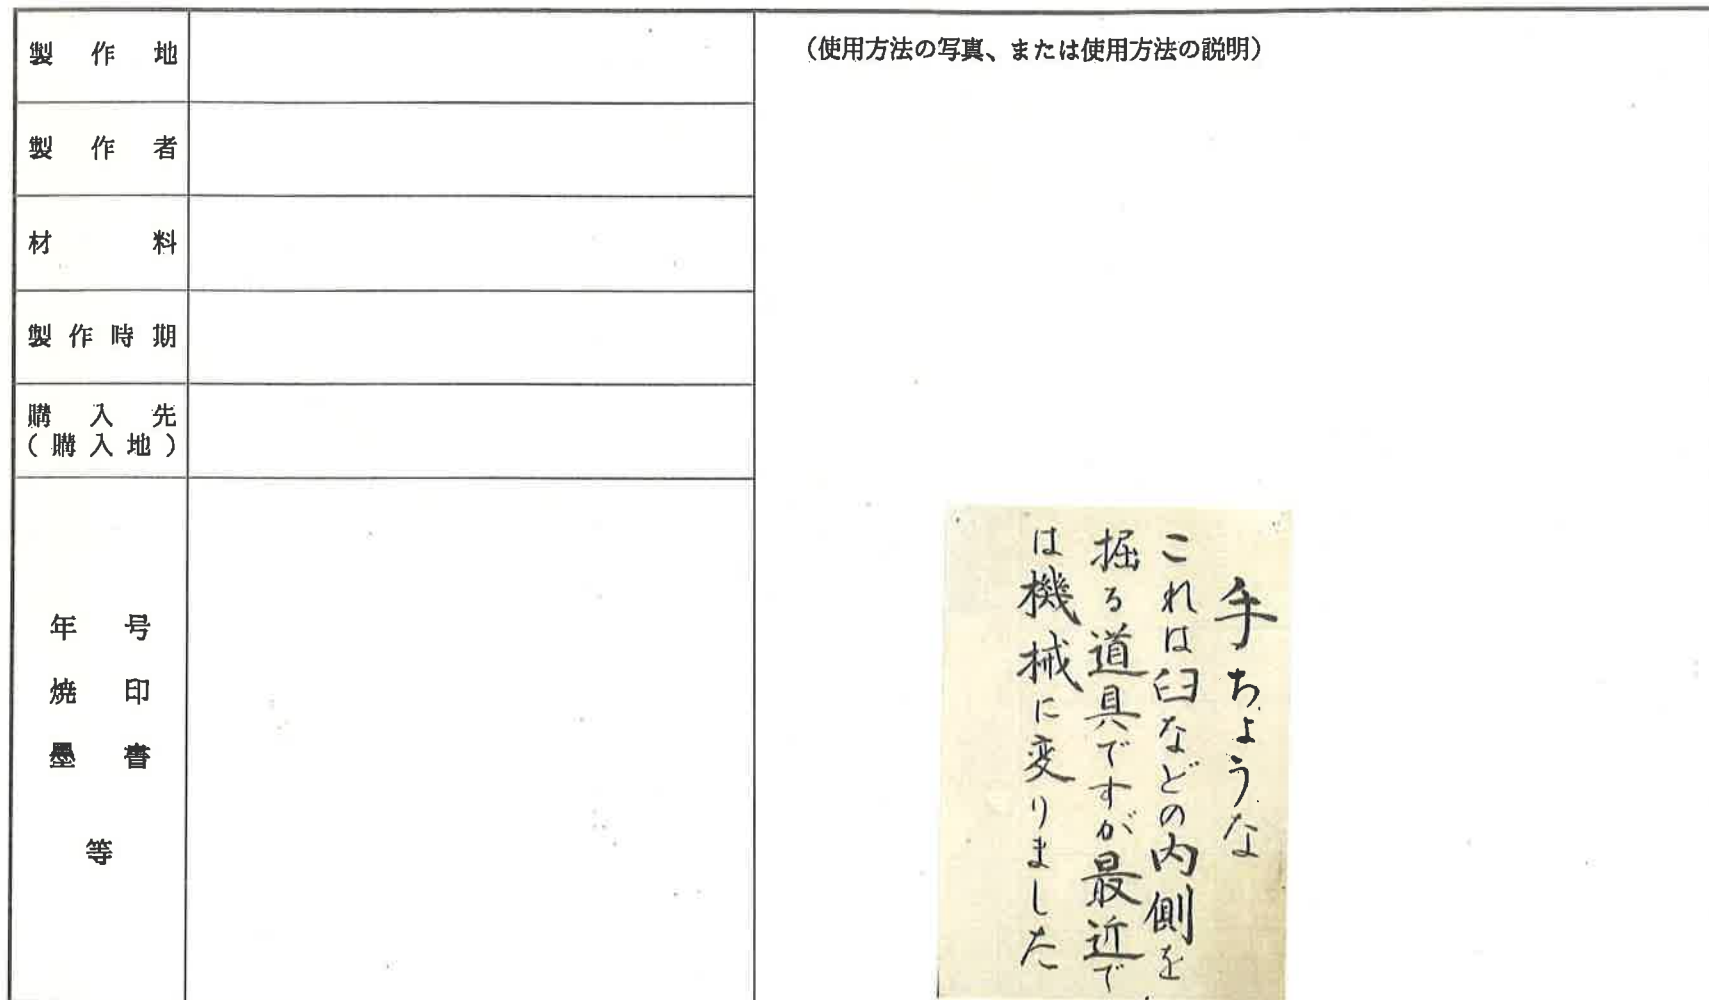 製作地
製作者
材料
製作時期
購入先
(購入地)
年号
焼印
墨書
等
(使用方法の写真、または使用方法の説明)
手ちょうな
これは臼などの内側を
掘る道具ですが最近で
は機械に変りました